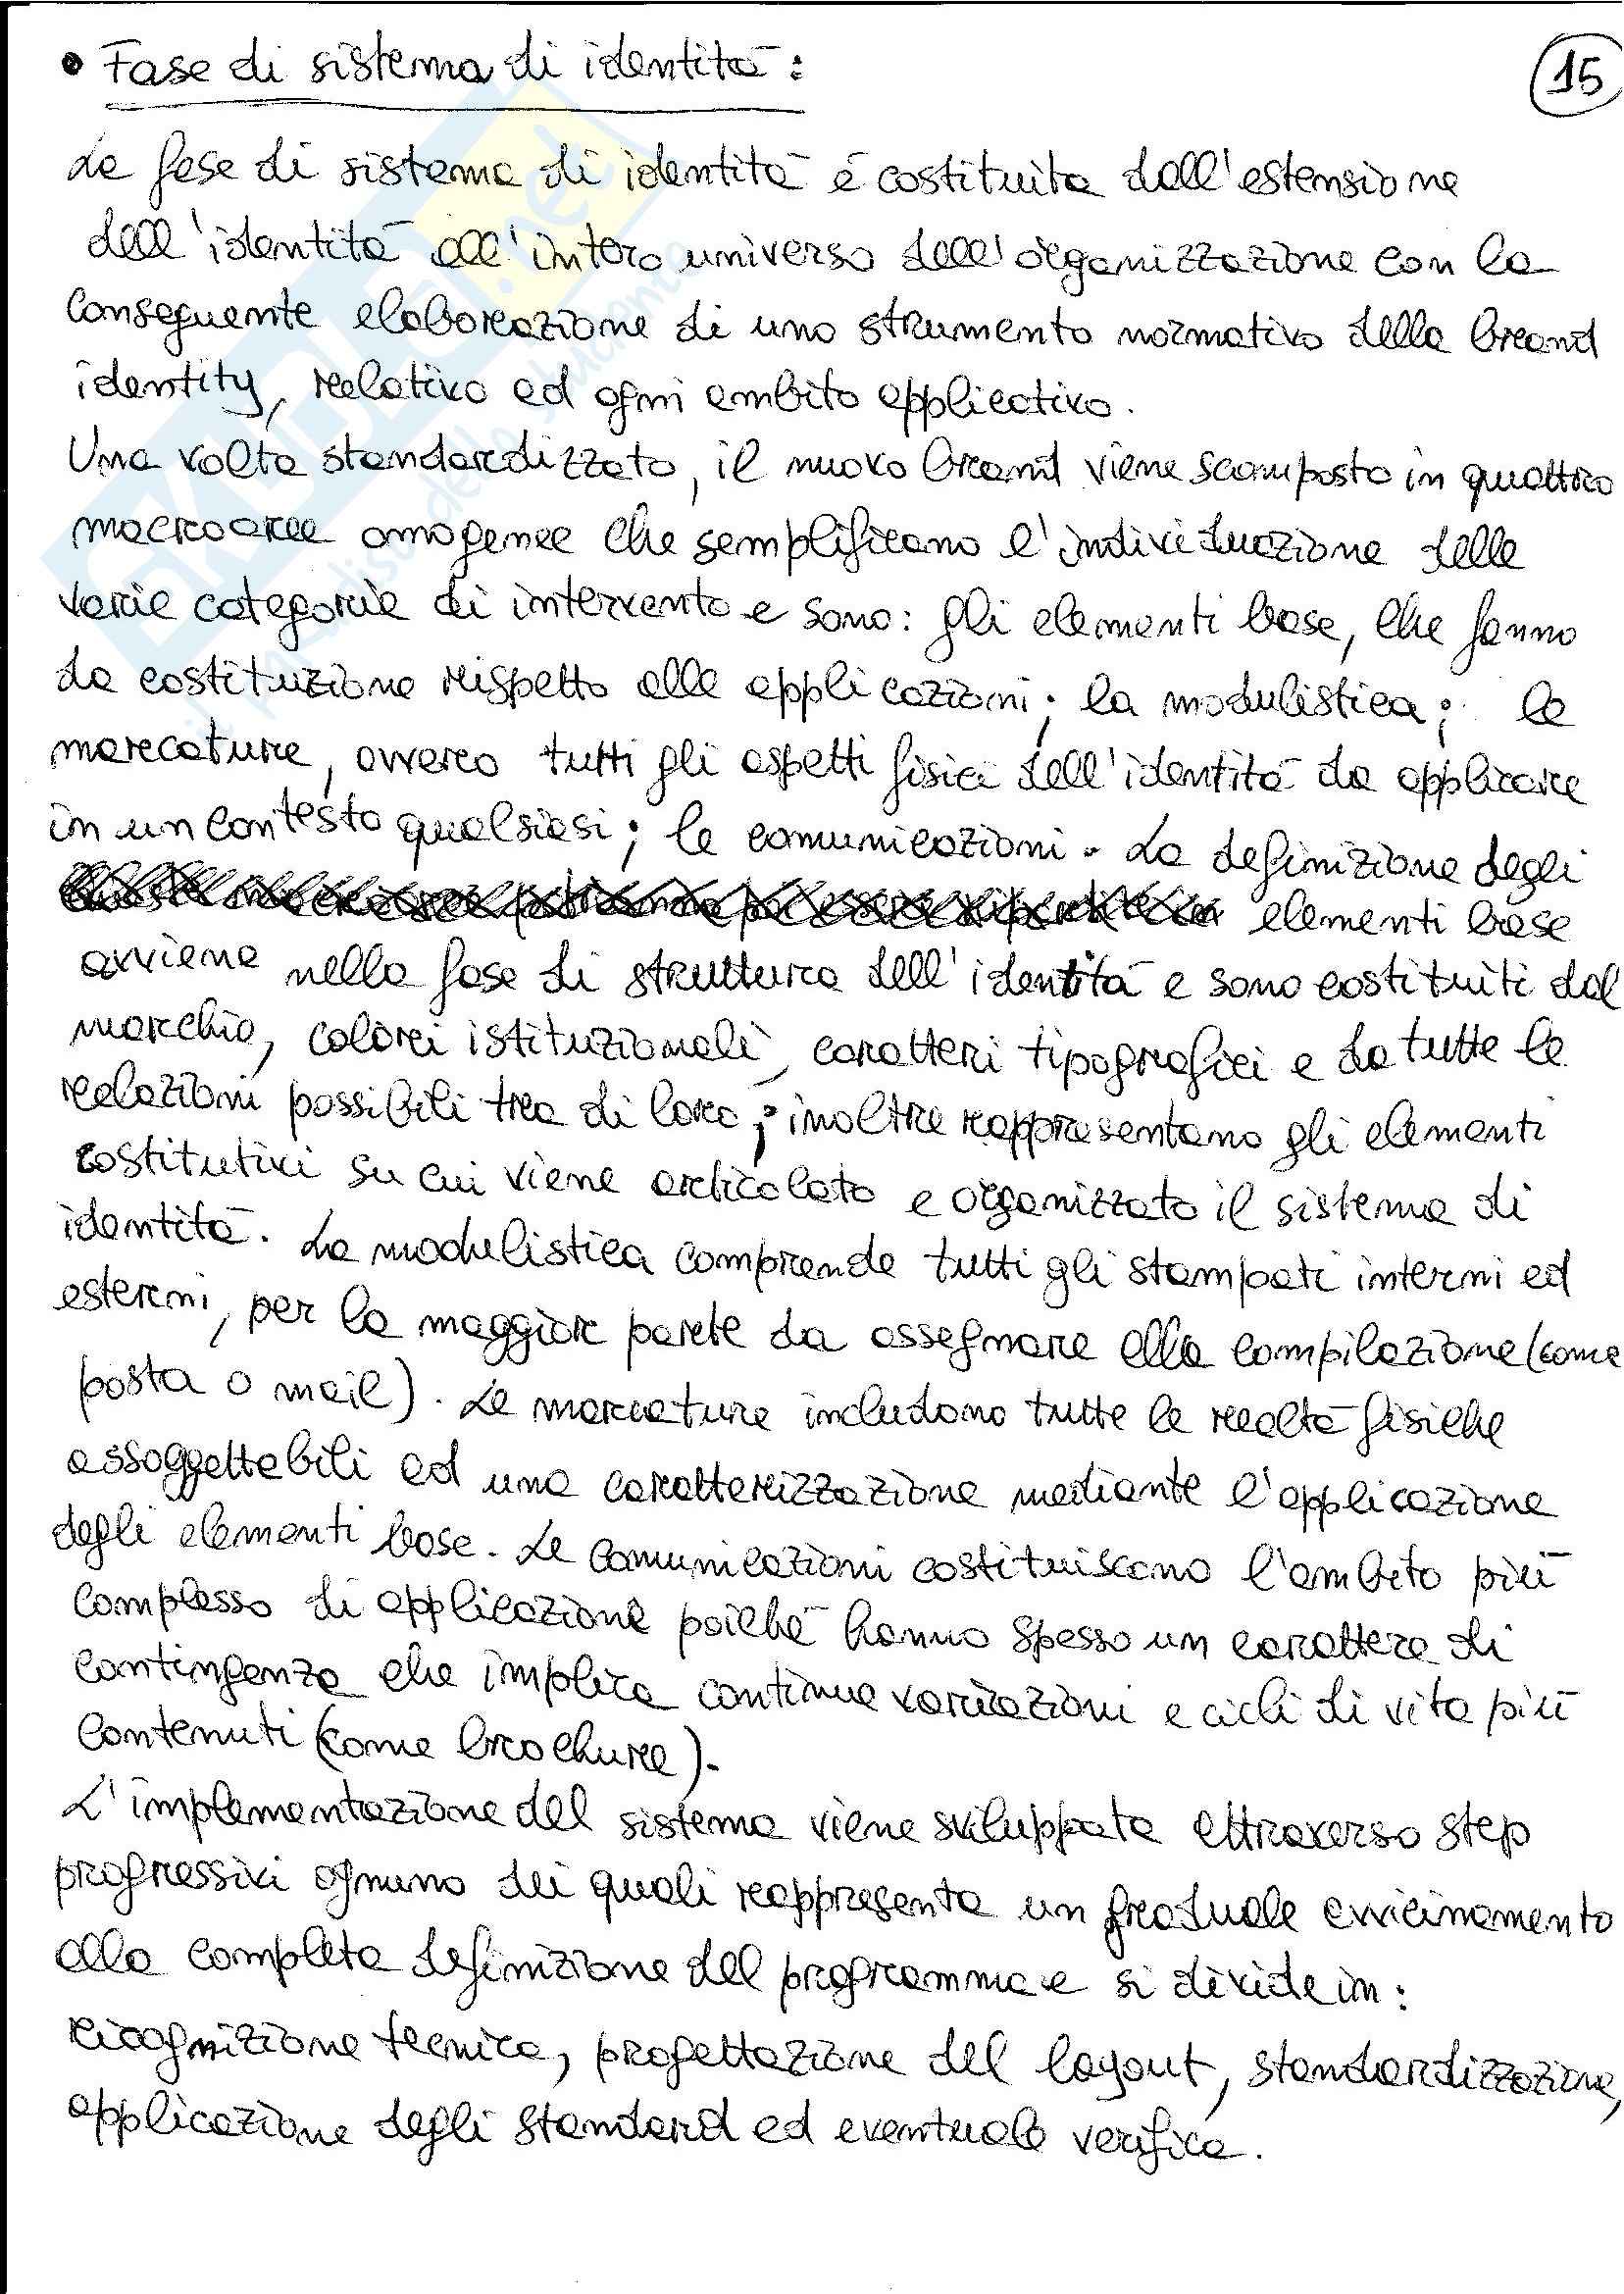 • Fase di sistema di identità:
15
La fase di sistema di identità è costituita dall'estensione
dell'identità all'intero universo dell'organizzazione con la
conseguente elaborazione di uno strumento normativo della brand
identity, relativo ad ogni ambito applicativo.
Una volta standardizzato, il nuovo brand viene scomposto in quattro
macroaree omogenee che semplificano l'individuazione delle
varie categorie di intervento e sono: gli elementi base, che fanno
da costituzione rispetto alle applicazioni; la modulistica; le
marcature, ovvero tutti gli aspetti fisici dell'identità da applicare
in un contesto qualsiasi; le comunicazioni. La definizione degli
elementi base
avviene nella fase di struttura dell'identità e sono costituiti dal
marchio, colori istituzionali, caratteri tipografici e da tutte le
relazioni possibili tra di loro; inoltre rappresentano gli elementi
costitutivi su cui viene articolato e organizzato il sistema di
identità. La modulistica comprende tutti gli stampati interni ed
esterni, per la maggior parte da assegnare alla compilazione (come
posta o mail). Le marcature includono tutte le realtà fisiche
assoggettabili ad una caratterizzazione mediante l'applicazione
degli elementi base. Le comunicazioni costituiscono l'ambito più
complesso di applicazione poiché hanno spesso un carattere di
contingenza che implica continue variazioni e cicli di vita più
contenuti (come brochure).
L'implementazione del sistema viene sviluppata attraverso step
progressivi ognuno dei quali rappresenta un graduale avvicinamento
alla completa definizione del programma e si divide in:
ricognizione tecnica, progettazione del layout, standardizzazione,
applicazione degli standard ed eventuale verifica.